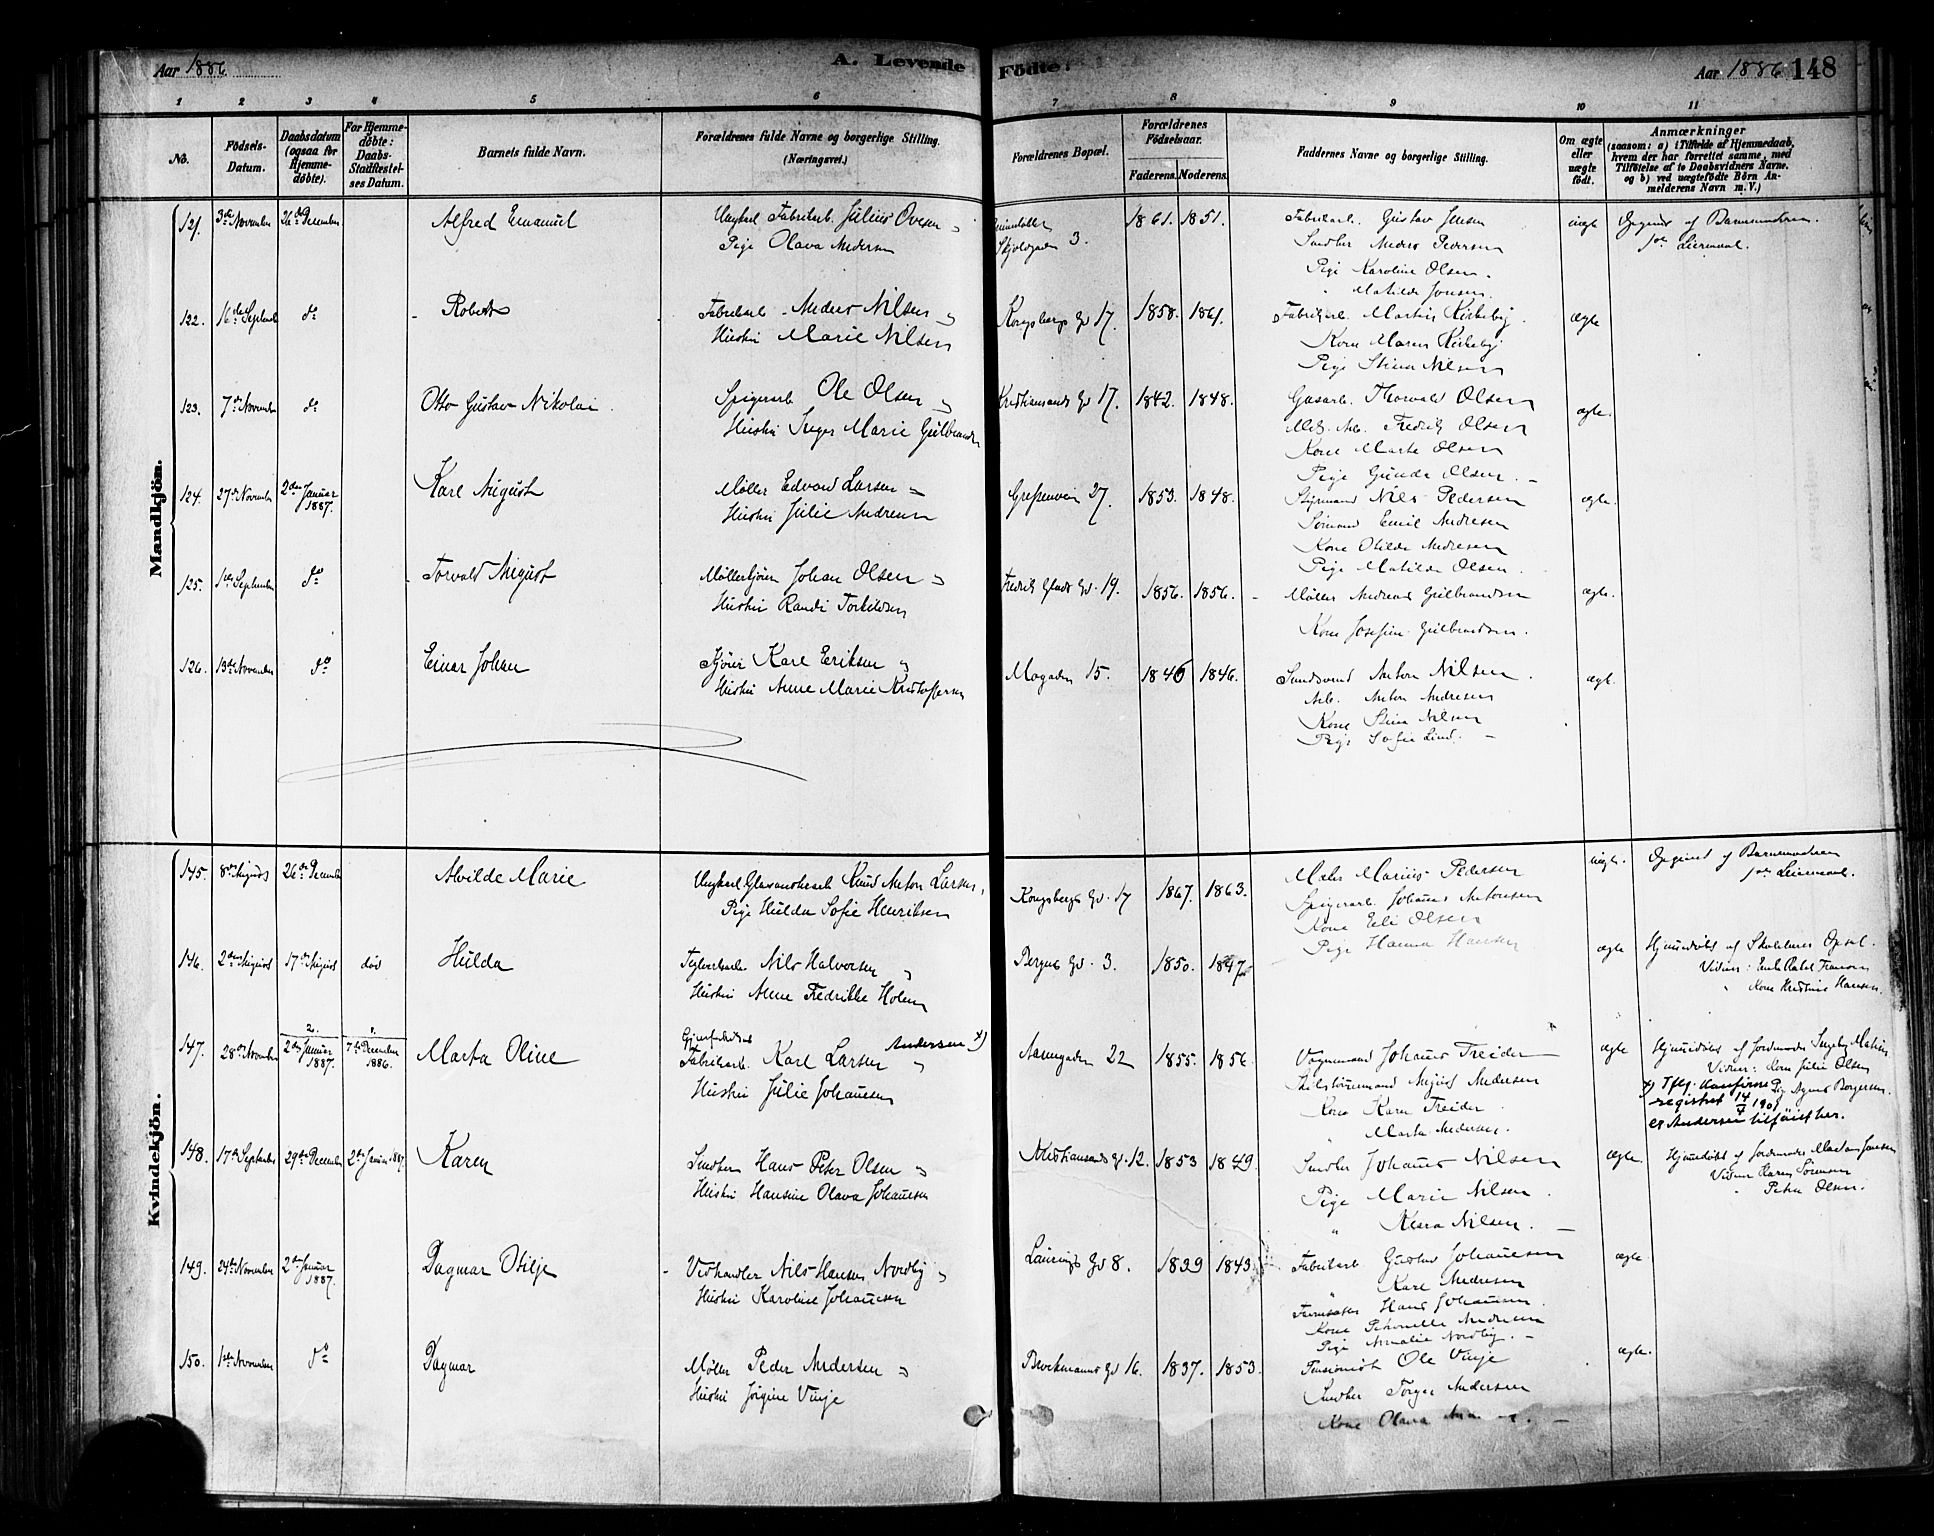 Aar 1886
A. Levende Födte.
Aar 1886 148
1 2 3 4 5 6 7 8 9 10 11
No.
Födsels-Datum.
Daabsdatum (ogsaa for Hjemme-döbte).
For Hjemme-döbte: Daabs-Stadfæstel-ses Datum.
Barnets fulde Navn.
Forældrenes fulde Navne og borgerlige Stilling.
(Næringsvei.)
Forældrenes Bopæl.
Forældrenes Födselsaar.
Faderens. Moderens.
Faddernes Navne og borgerlige Stilling.
Om ægte eller uægte födt.
Anmærkninger
(saasom: a) i Tilfælde af Hjemmedaab,
hvem der har forrettet samme, med
Tilföielse af to Daabsvidners Navne.
og b) ved uægtefödte Börn An-
melderens Navn m. V.)
Mandkjön.
121. 3die November 26de December Alfred Emanuel Ungkarl Fabrikarb. Julius Ovesen 3. 1861. 1851. Fabrikarb. Gustav Jensen uægte Opgivet af Barnemoderen
Pige Olava Andersen Smedker Anders Pedersen for Leiermaal.
Pige Karoline Olsen.
" Matilde Jensen.
122. 16de Septemb. do Robert Fabrikarb. Anders Nilsen Kongsbergs Gd 17. 1858. 1861. Fabrikarb. Martin Kirkeby. ægte
Hustru Marie Nilsen Kone Maren Kirkeby
Pige Stina Nilsen
123. 7de November do Otto Gustav Nikolai. Spigerarb. Ole Olsen Kristiansands Gd 17. 1842. 1848. Gasarb. Thorvald Olsen ægte.
Hustru Inger Marie Gulbrandsen Fredrik Olsen
Kone Marte Olsen
Pige Gunda Olsen.
124. 27de November 2den Januar 1887. Karl August Møller Edvard Larsen Grefsenvein 27. 1853. 1848. Styrmand Nils Pedersen ægte.
Hustru Julie Andresen Sømand Emil Andresen
Kone Otilde Andresen
Pige Matilde Olsen.
125. 1ste September do Torvald August Møllerkjører Johan Olsen Fredrik Glads Gd. 19. 1856. 1856. Møller Andreas Gulbrandsen ægte.
Hustru Randi Torkildsen Kone Josefine Gulbrandsen.
126. 13de November do Einar Johan Kjører Karl Eriksen Mogaden 15. 1846 1846. Sundsmand Anton Nilsen. ægte.
Hustru Anne Marie Kristoffersen Arb. Anton Andresen
Kone Stina Nilsen
Pige Sofie Lund.
Kvindekjön.
145. 8de August 26de December Alvilde Marie Ungkarl Glasmesterarb. Knud Anton Larsen, Kongsbergs Gd. 17 1867. 1863. Maler Marius Pedersen uægte. Opgivet af Barnemoderen
Pige Hulda Sofie Henriksen Spigerarb. Johannes Antonsen for Leiermaal.
Kone Eli Olsen
Pige Hanna Hansen
146. 2den August 17de August død Hulda Teglverksarb. Nils Halvorsen Bergens Gd. 3. 1850. 1847. ægte Hjemmedøbt af
Hustru Anne Fredrikke Holm Vidner:
Kone Hansen.
147. 28de November 2. 2den Januar 1887. 1. 7de December 1886. Marta Oline Fabrikarb. Karl Larsen Andersen x) 22 1855. 1856. Vognmand Johannes Treider ægte Hjemmedøbt af Jordmoder
Hustru Julie Johansen August Andersen Vidner: Kone Julie Olsen
Kone Karen Treider. Pige Agnes Borgersen.
" Marta Andersen. x) Iflg. Konfirm.
registret 14/7 1901
er Andersen tilföiet her.
148. 17de September 29de December 2den Januar 1887. Karen Smedker Hans Peter Olsen Kristiansands Gd. 12. 1853 1849. Smedker Johannes Nilsen ægte Hjemmedøbt af Jordmoder Jensen
Hustru Hansine Olava Johansen Pige Marie Nilsen. Vidner Karen Sørensen
" Klara Nilsen. " Petra Olsen.
149. 24de November 2den Januar 1887. Dagmar Otilje Vedhandler Nils Hansen Nordby Gd 8. 1839 1843 Fabrikarb. Gustav Johansen ægte
Hustru Karoline Johansen " Karl Andresen
Hans Johansen.
Kone Petronelle Andresen
Pige Amalie Nordby.
150. 1ste November do Dagmar Møller Peder Andersen Brockmanns Gd 16. 1837. 1853. Ole Vinje ægte.
Hustru Jørgine Vinje Smedker Torger Andersen
Kone Olava